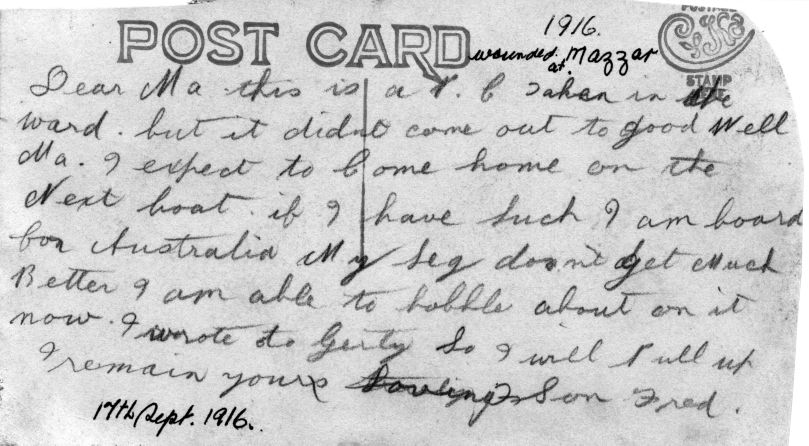 1916.
wounded. Mazzar
at.
POST CARD
POSTAGE
STAMP
Dear Ma this is a P. C Taken in the
ward. but it didnt come out to good Well
Ma. I expect to Come home on the
Next boat. if I have such I am board
for Australia My Leg doesnt Get Much
Better I am able to hobble about on it
now. I wrote to Gerty So I will Pull up
I remain yours Loving Son Fred.
17th Sept. 1916.